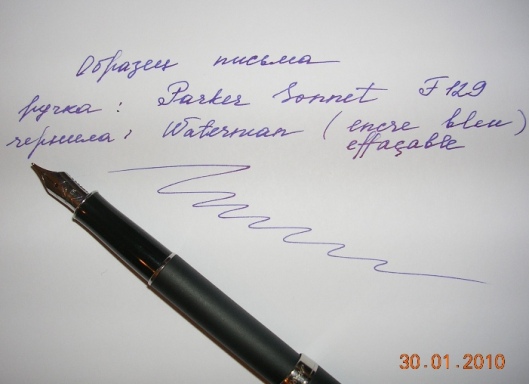 Образец письма
ручка: Parker Sonnet F129
чернила: Waterman (encre bleu)
effaçable
30.01.2010